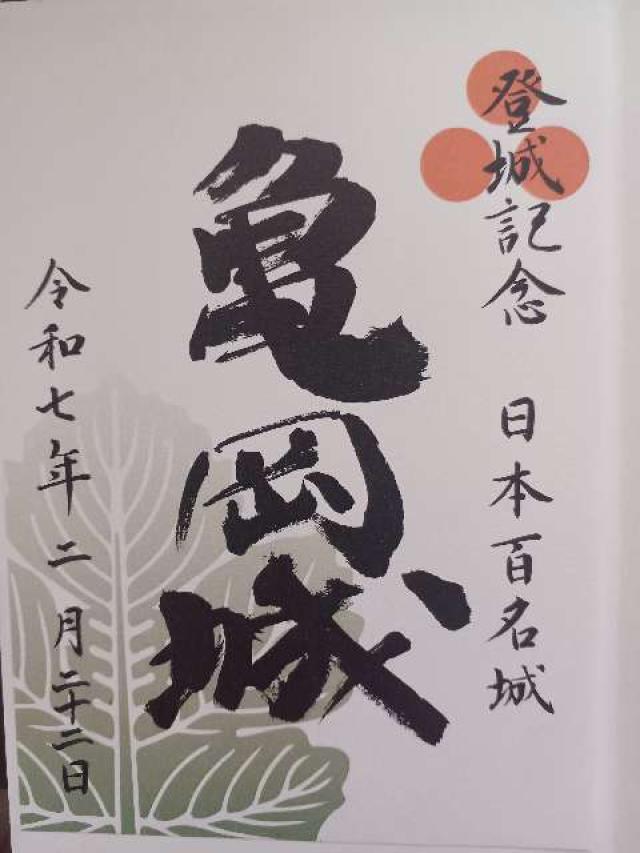 登城記念 日本百名城
亀岡城
令和七年二月二十二日